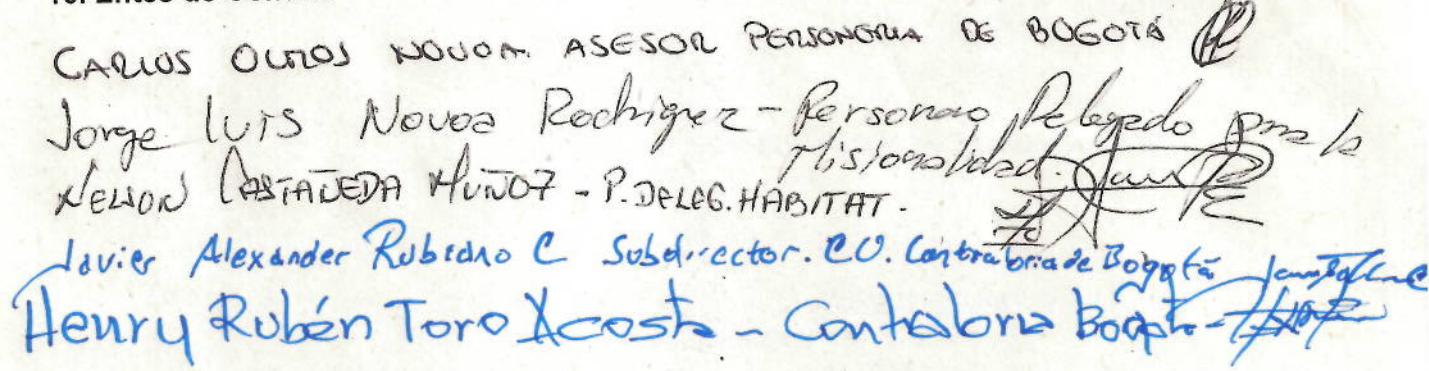 CARLOS OLMOS NOVOA. ASESOR PERSONERIA DE BOGOTÁ
Jorge Luis Novoa Rodriguez - Personero Delegado para la
Misionalidad.
NELSON CASTAÑEDA MUÑOZ - P. DELEG. HÁBITAT.
Javier Alexander Rubiano C Subdirector. C.U. Contraloria de Bogotá
Henry Rubén Toro Acosta - Contraloria Bogotá -